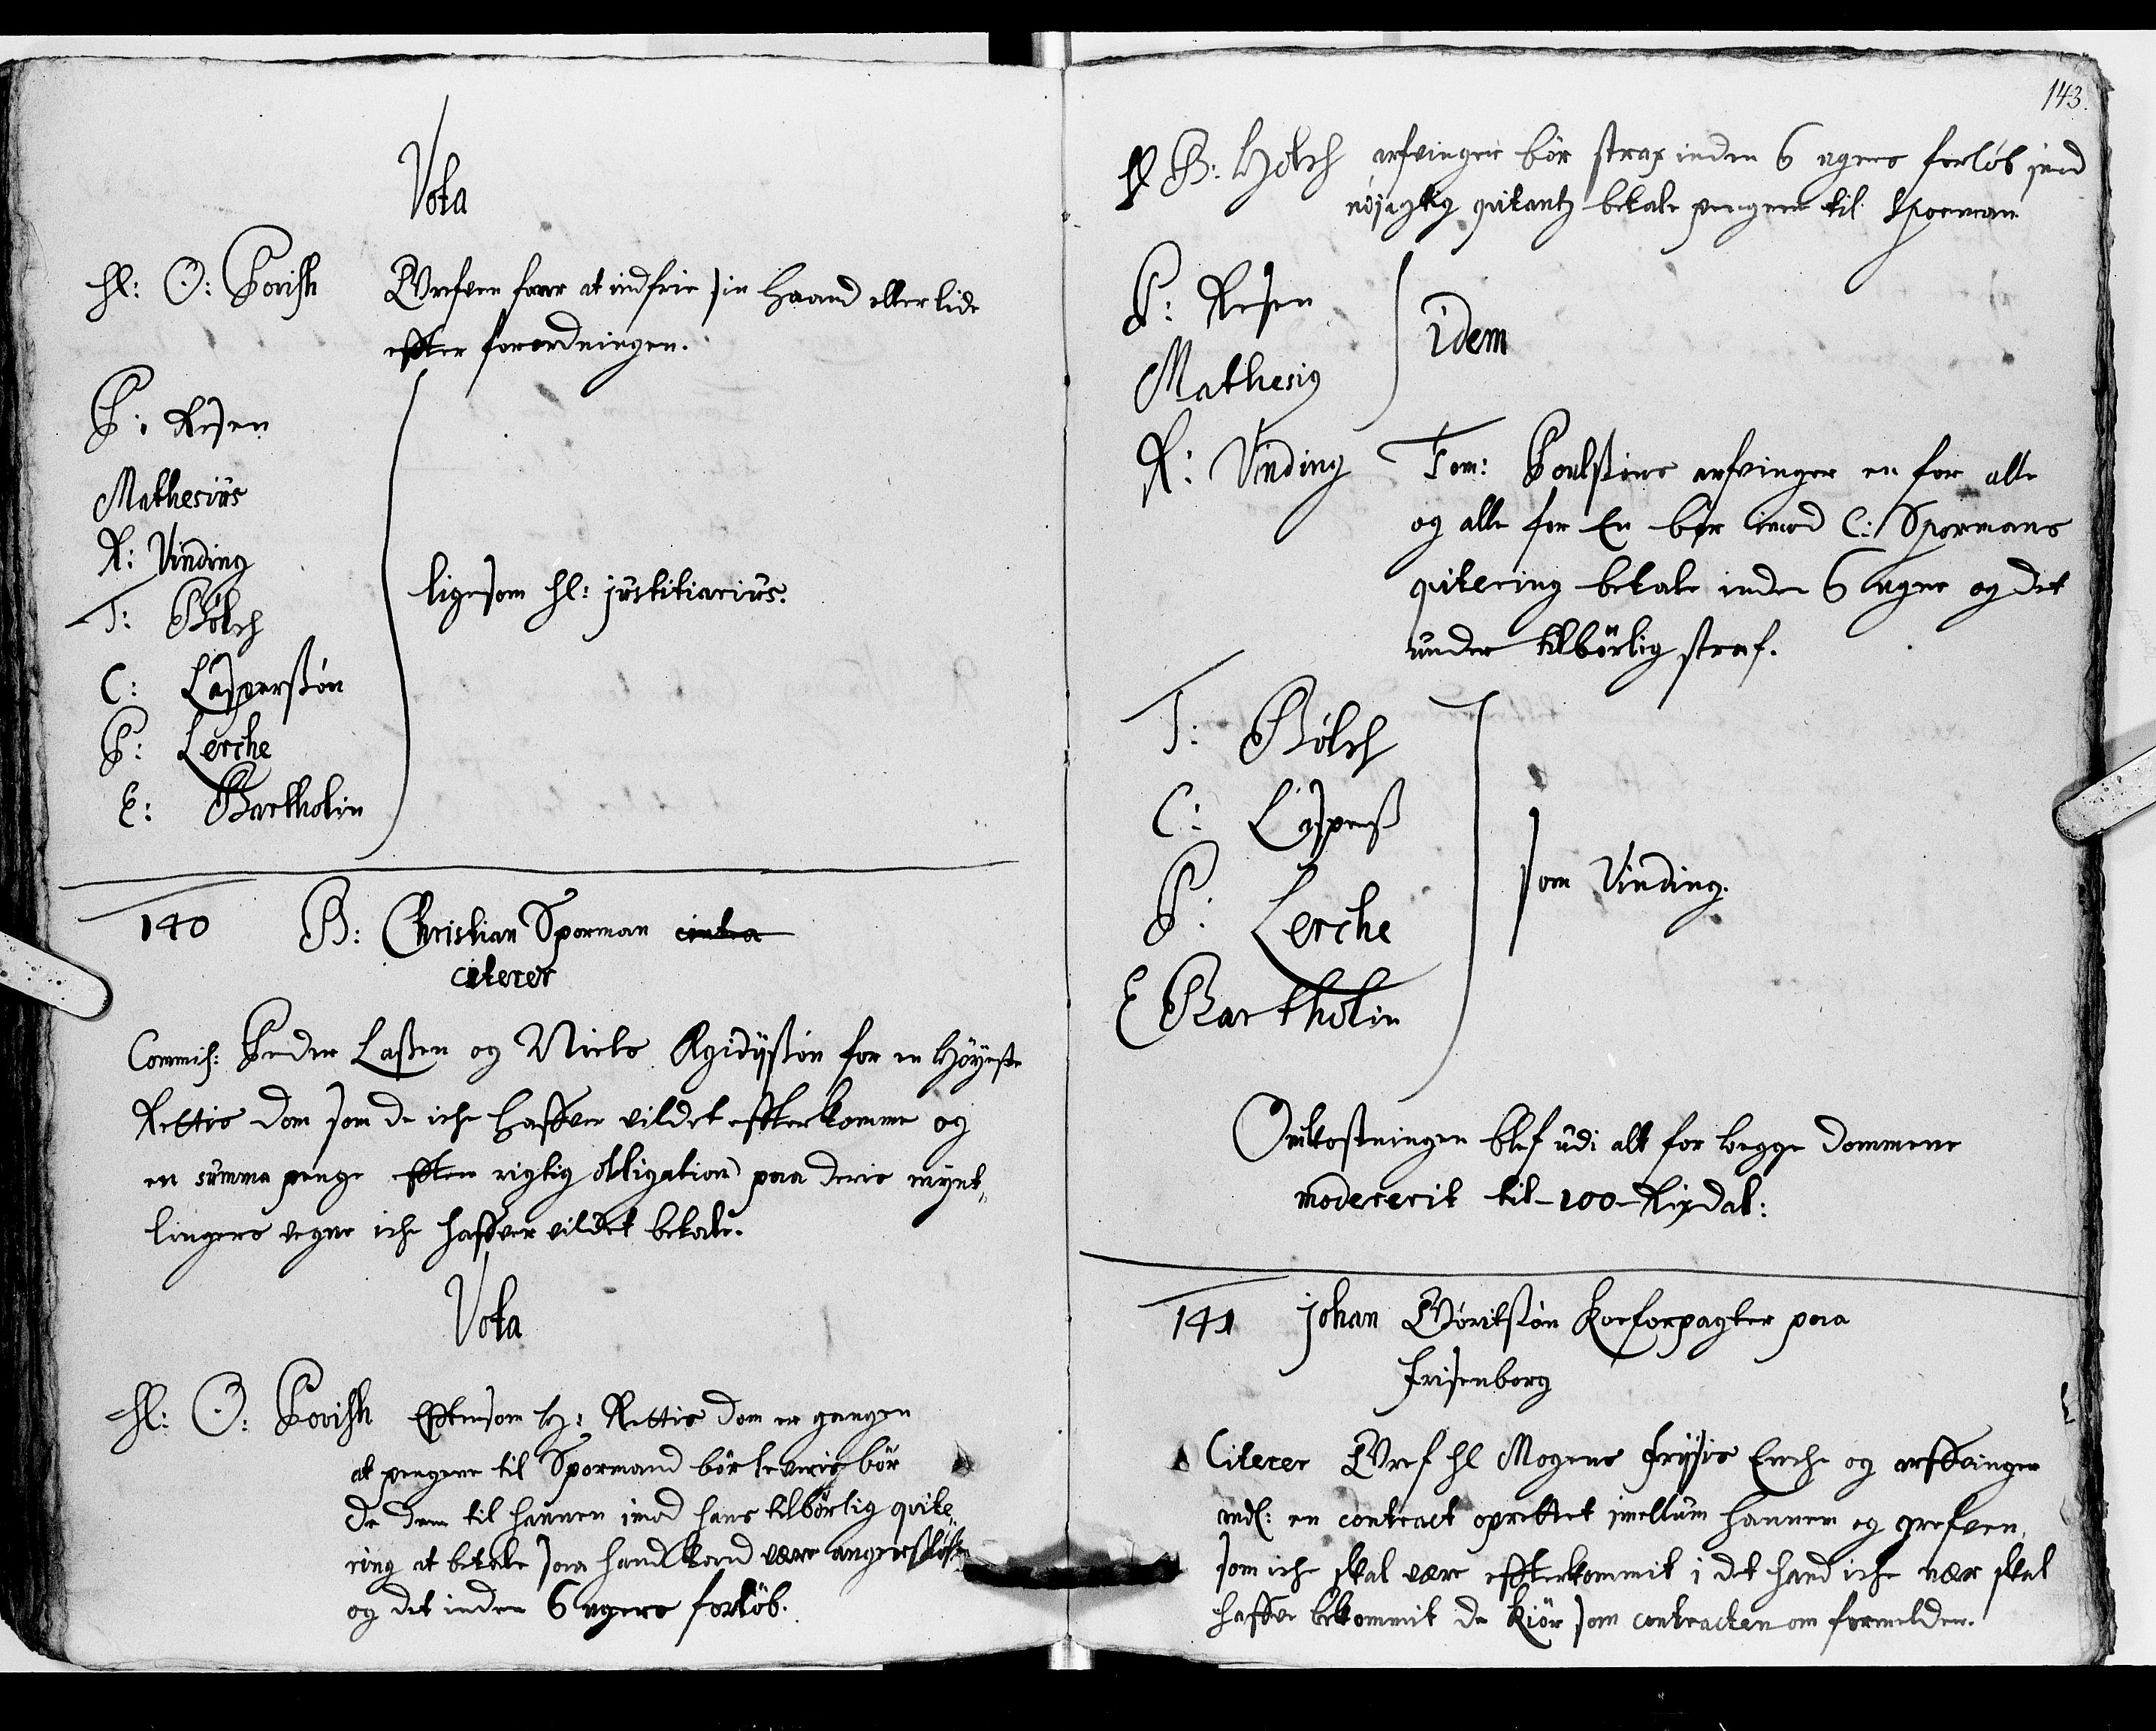 Vota
Hl: O: Povish Grefven faar at indfrie sin Haand eller lide
effter forordningen.
P: Resen
Mathesius
R: Vinding
T: Bölch
ligesom Hl: justitiarius.
C: Casperssøn
P: Lerche
E: Bartholin
140 B: Christian Sporman contra
citerer
Commiss: Peder Lassen og Niels Ægidyssøn for en Höyeste
Rettis dom som de iche haffver vildet effterkomme og
en summa penge effter rigtig obligation paa deris mynt-
lingers vegne iche haffver vildet betale.
Vota
Hl: O: Povish Efftersom H: Rettis dom er gangen
at pengene til Spormand bör leveris bör
de dem til hannem imod hans tilbörlig quite-
ring at betale saa hand kand være angerslöss
og det inden 6 ugers forlöb.
143.
Hl B: Hölch arfvinger bör strax inden 6 ugers forlöb imod
nöjagtig qvitantz betale pengene til Sporman
P: Resen
idem
Mathesius
R: Vinding Tom: Poulssøns arfvinger en for alle
og alle for En bör imod C: Spormans
qvitering betale inden 6 uger og det
under tilbörlig straf.
T: Bölch
C: Casperss
som Vinding.
P: Lerche
E Bartholin
Omkostningen blef udi alt for begge dommene
modererit til - 100 - Rixdal:
141 Johan Göritssøn Koeforpagter paa
Frisenborg
Citerer Gref Hl Mogens Frysis Enche og arffvinger
andl: en contract oprettet imellum hannem og grefven,
som iche skal være effterkommit i det hand iche nær skal
haffve bekommit de Kiör som contracten om formelder.